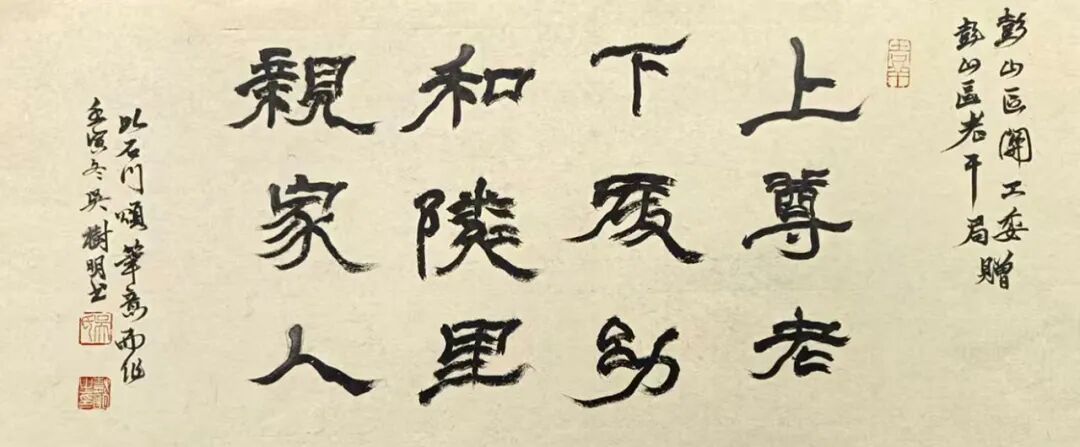 彭山区關工委
彭山區老干局贈
上尊老
下愛幼
和隣里
親家人
以石门頌筆意而作
壬寅冬吴樹明书